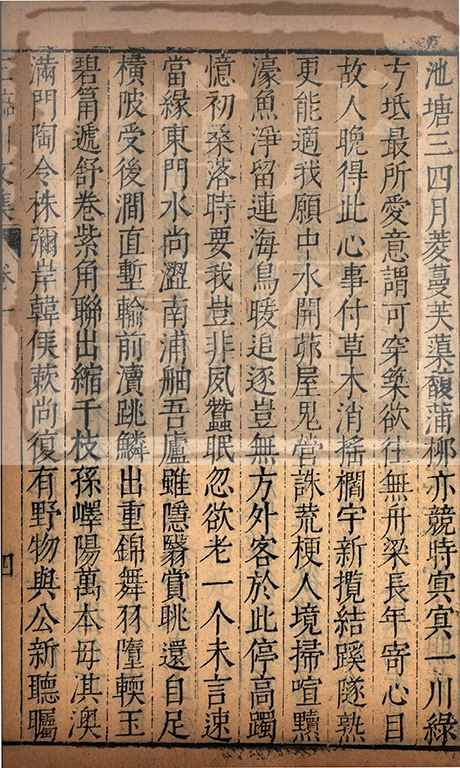 池塘三四月菱蔓芙蕖馥蒲栁亦競時冥冥一川綠
方坻最所愛意謂可穿築欲往無舟梁長年寄心目
故人晚得此心事付草木消搖櫩宇新攬結蹊隧熟
更能適我願中水開茆屋鬼營誅荒梗人境掃喧黷
濠魚淨留連海鳥暖追逐豈無方外客於此停高躅
憶初桑落時要我豈非夙蠶眠忽欲老一个未言速
當緣東門水尚澀南浦舳吾廬雖隱翳賞眺還自足
橫陂受後澗直塹輸前瀆跳鱗出重錦舞羽墮輭玉
碧筩遞舒卷紫角聯出縮千枝孫嶧陽萬本毋淇澳
滿門陶令株彌岸韓侯蔌尚復有野物與公新聽矚
王臨川文集 卷一 四